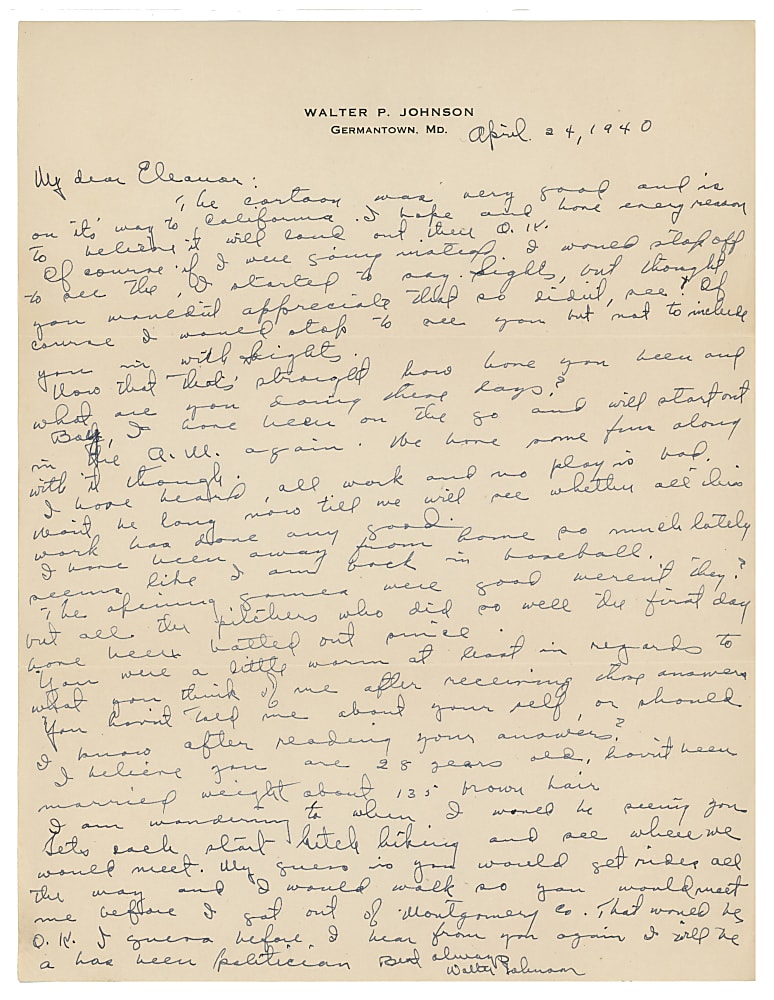 WALTER P. JOHNSON
GERMANTOWN, MD.
April 24, 1940
My dear Eleanor:
The cartoon was very good and is
on it's way to California. I hope and have every reason
to believe it will land out there O.K.
Of course if I were going instead I would stop off
to see the, I started to say Sights, but thought
you wouldn't appreciate that so didn't, see? Of
course I would stop to see you but not to include
you in with Sights.
Now that that's straight how have you been and
what are you doing these days?
Boy, I have been on the go and will start out
in the A.M. again. We have some fun along
with it though.
I have heard, all work and no play is bad.
Won't be long now till we will see whether all this
work has done any good.
I have been away from home so much lately
seems like I am back in baseball.
The opening games were good weren't they?
but all the pitchers who did so well the first day
have been batted out since.
You were a little warm at least in regards to
what you think of me after receiving those answers
You havn't told me about your self, or should
I know after reading your answers?
I believe you are 28 years old, havn't been
married weight about 135 brown hair
I am wondering to when I would be seeing you
Lets each start hitch hiking and see where we
would meet. My guess is you would get rides all
the way and I would walk so you would meet
me before I got out of Montgomery Co. That would be
O.K. I guess before I hear from you again I will be
a has been politician Best always
Walter Johnson